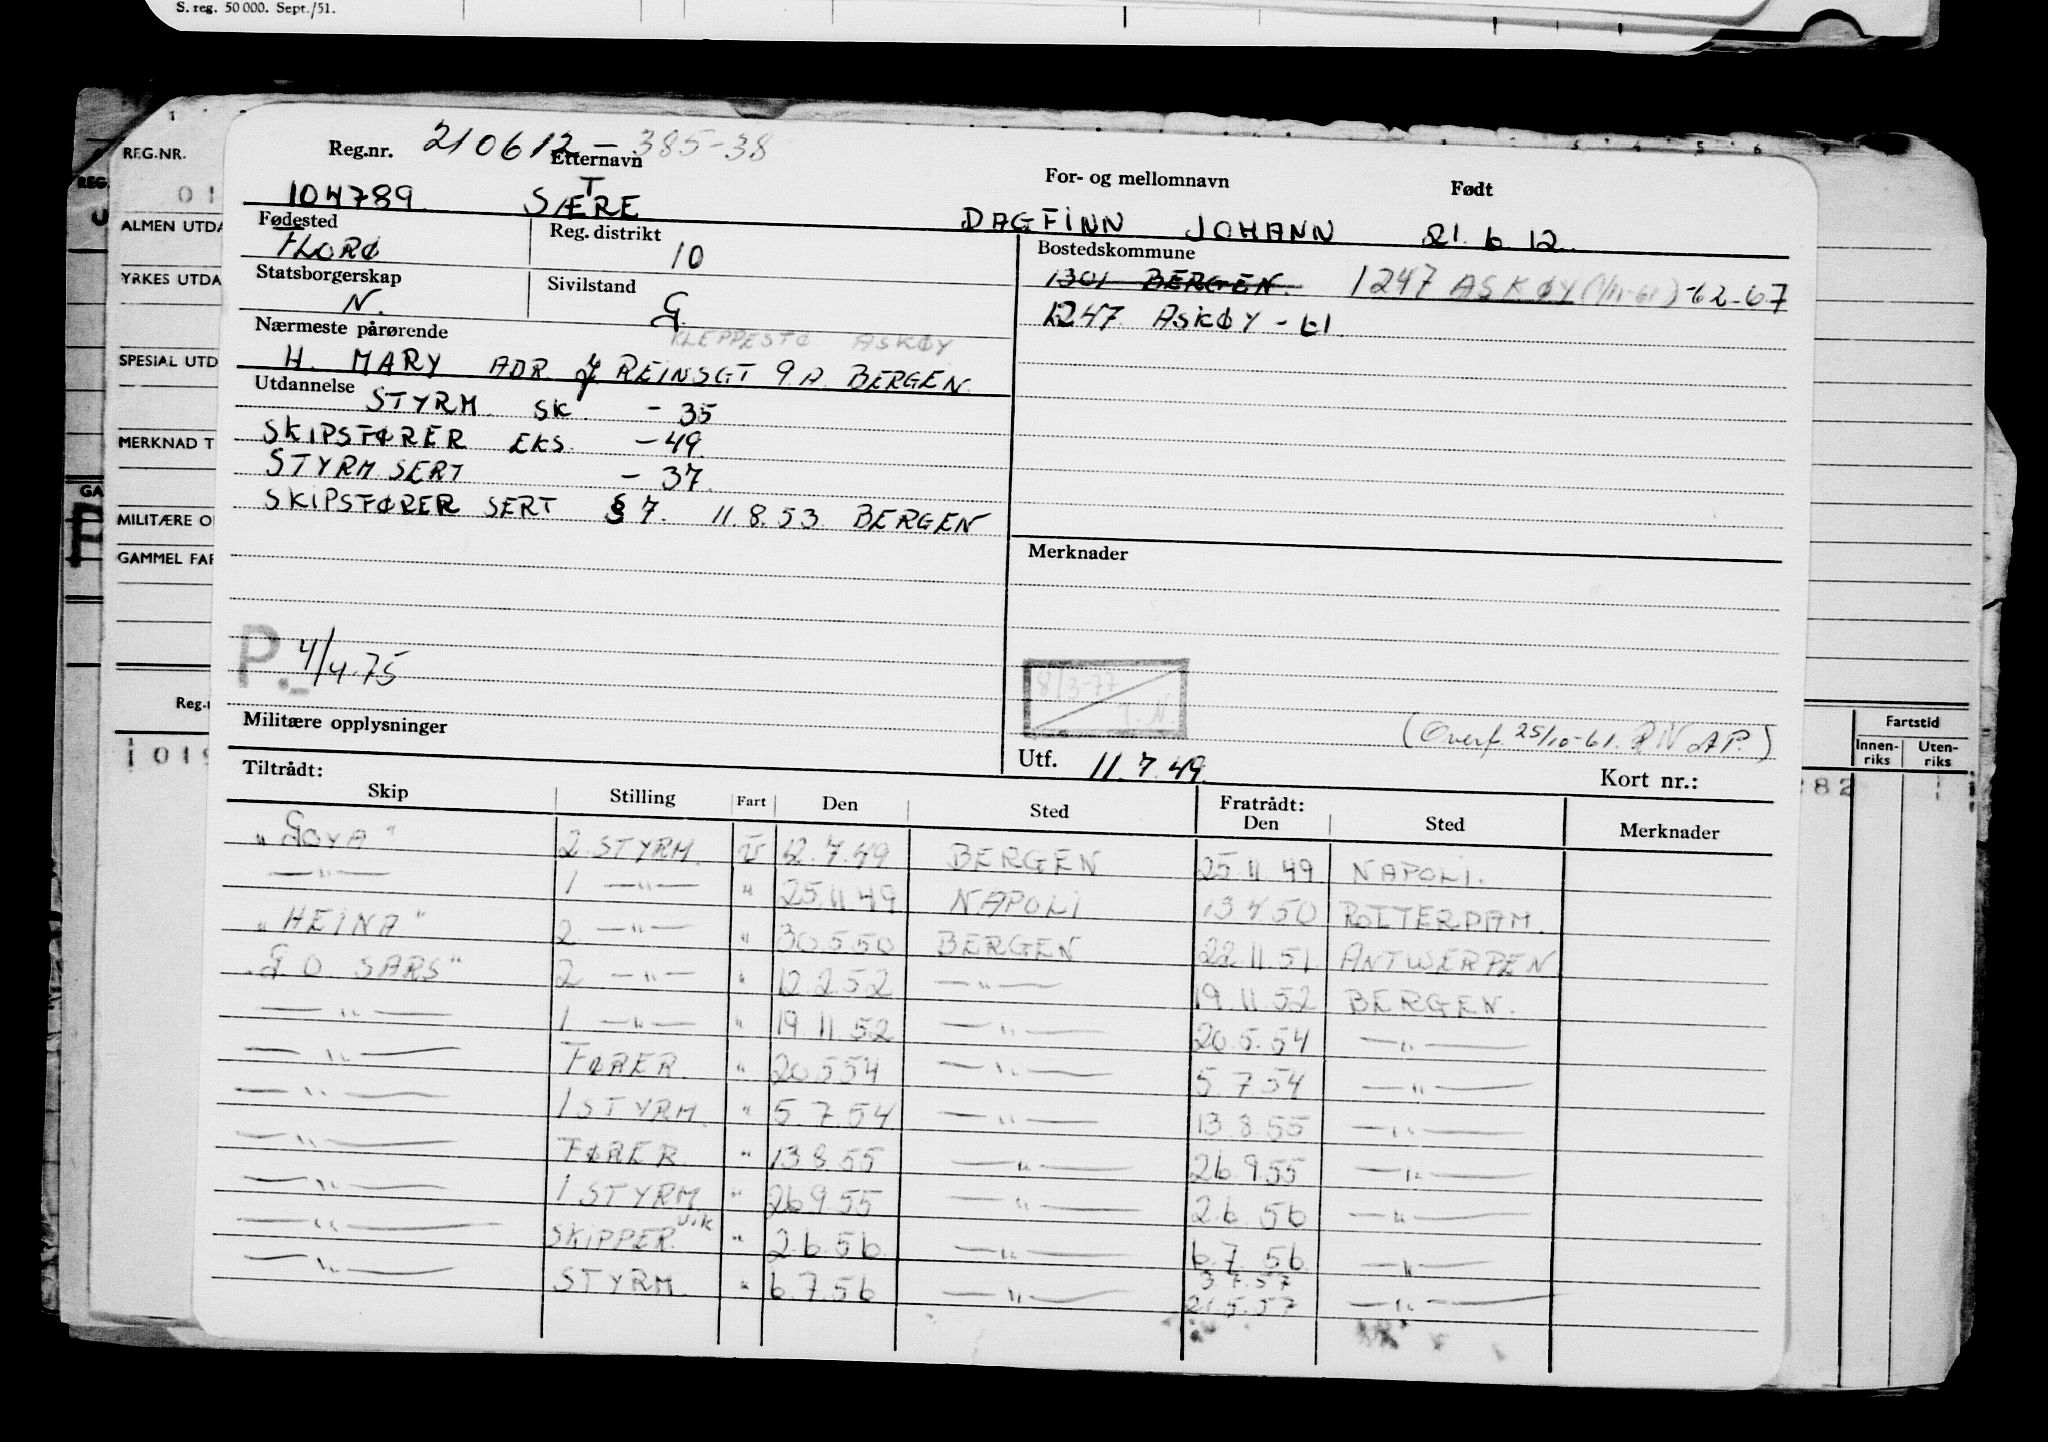 S. reg. 50 000. Sept./51.
REG.NR.
ALMEN UTDA
YRKES UTDA
SPESIAL UTD
MERKNAD T
MILITÆRE O
GAMMEL FAR
Reg.nr. 210612-385-38
Etternavn For- og mellomnavn Født
104789 SÆTRE DAGFINN JOHANN 21.6.12.
Fødested Reg. distrikt Bostedskommune
FLORØ 10 1301 BERGEN. 1247 ASKØY (1/11-61) -62-67
Statsborgerskap Sivilstand
N. G. 1247 ASKØY -61
Nærmeste pårørende KLEPPESTØ ASKØY
H. MARY ADR J REINSGT 9.A. BERGEN.
Utdannelse STYRM. SK. - 35
SKIPSFØRER EKS. - 49.
STYRM SERT - 37.
SKIPSFØRER SERT § 7. 11.8.53 BERGEN
Merknader
P.- 4/4-75
8/3-77
(Overf. 25/10-61.
Militære opplysninger
Utf. 11.7.49. Kort nr.:
Fartstid
Innen-riks Uten-riks
Tiltrådt: Fratrådt:
Skip Stilling Fart Den Sted Den Sted Merknader
"GOYA" 2. STYRM. U 12.7.49 BERGEN 25.11.49 NAPOLI.
—"— 1 —"— " 25.11.49 NAPOLI 13.4.50 ROTTERDAM.
"HEINA" 2 —"— " 30.5.50 BERGEN 22.11.51 ANTWERPEN
"G.O. SARS" 2 —"— " 12.2.52 —"— 19.11.52 BERGEN.
—"— 1 —"— " 19.11.52 —"— 20.5.54 —"—
—"— FØRER. " 20.5.54 —"— 5.7.54 —"—
—"— 1 STYRM. " 5.7.54 —"— 13.8.55 —"—
—"— FØRER " 13.8.55 —"— 26.9.55 —"—
—"— 1 STYRM " 26.9.55 —"— 2.6.56 —"—
—"— SKIPPER VIK " 2.6.56 —"— 6.7.56 —"—
—"— STYRM. " 6.7.56 —"— 21.5.57 —"—